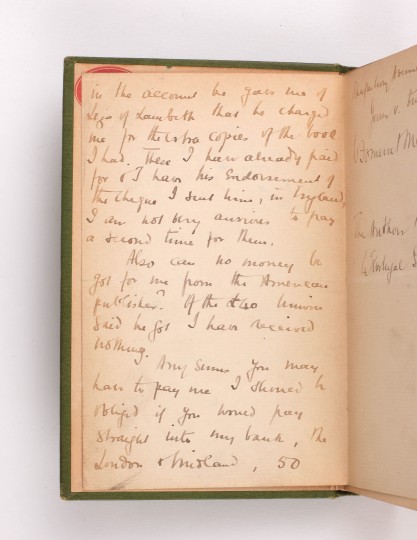 in the account he gave me of
Liza of Lambeth that he charged
me for the extra copies of the book
I had. These I have already paid
for & I have his Endorsement of
the cheque I sent him, in England,
I am not very anxious to pay
a second time for them.
Also can no money be
got for me from the American
publisher? Of the £40 Unwin
said he got I have received
nothing.
Any sums you may
have to pay me I should be
obliged if you would pay
straight into my bank, the
London & Midland, 50
James v.
The Author